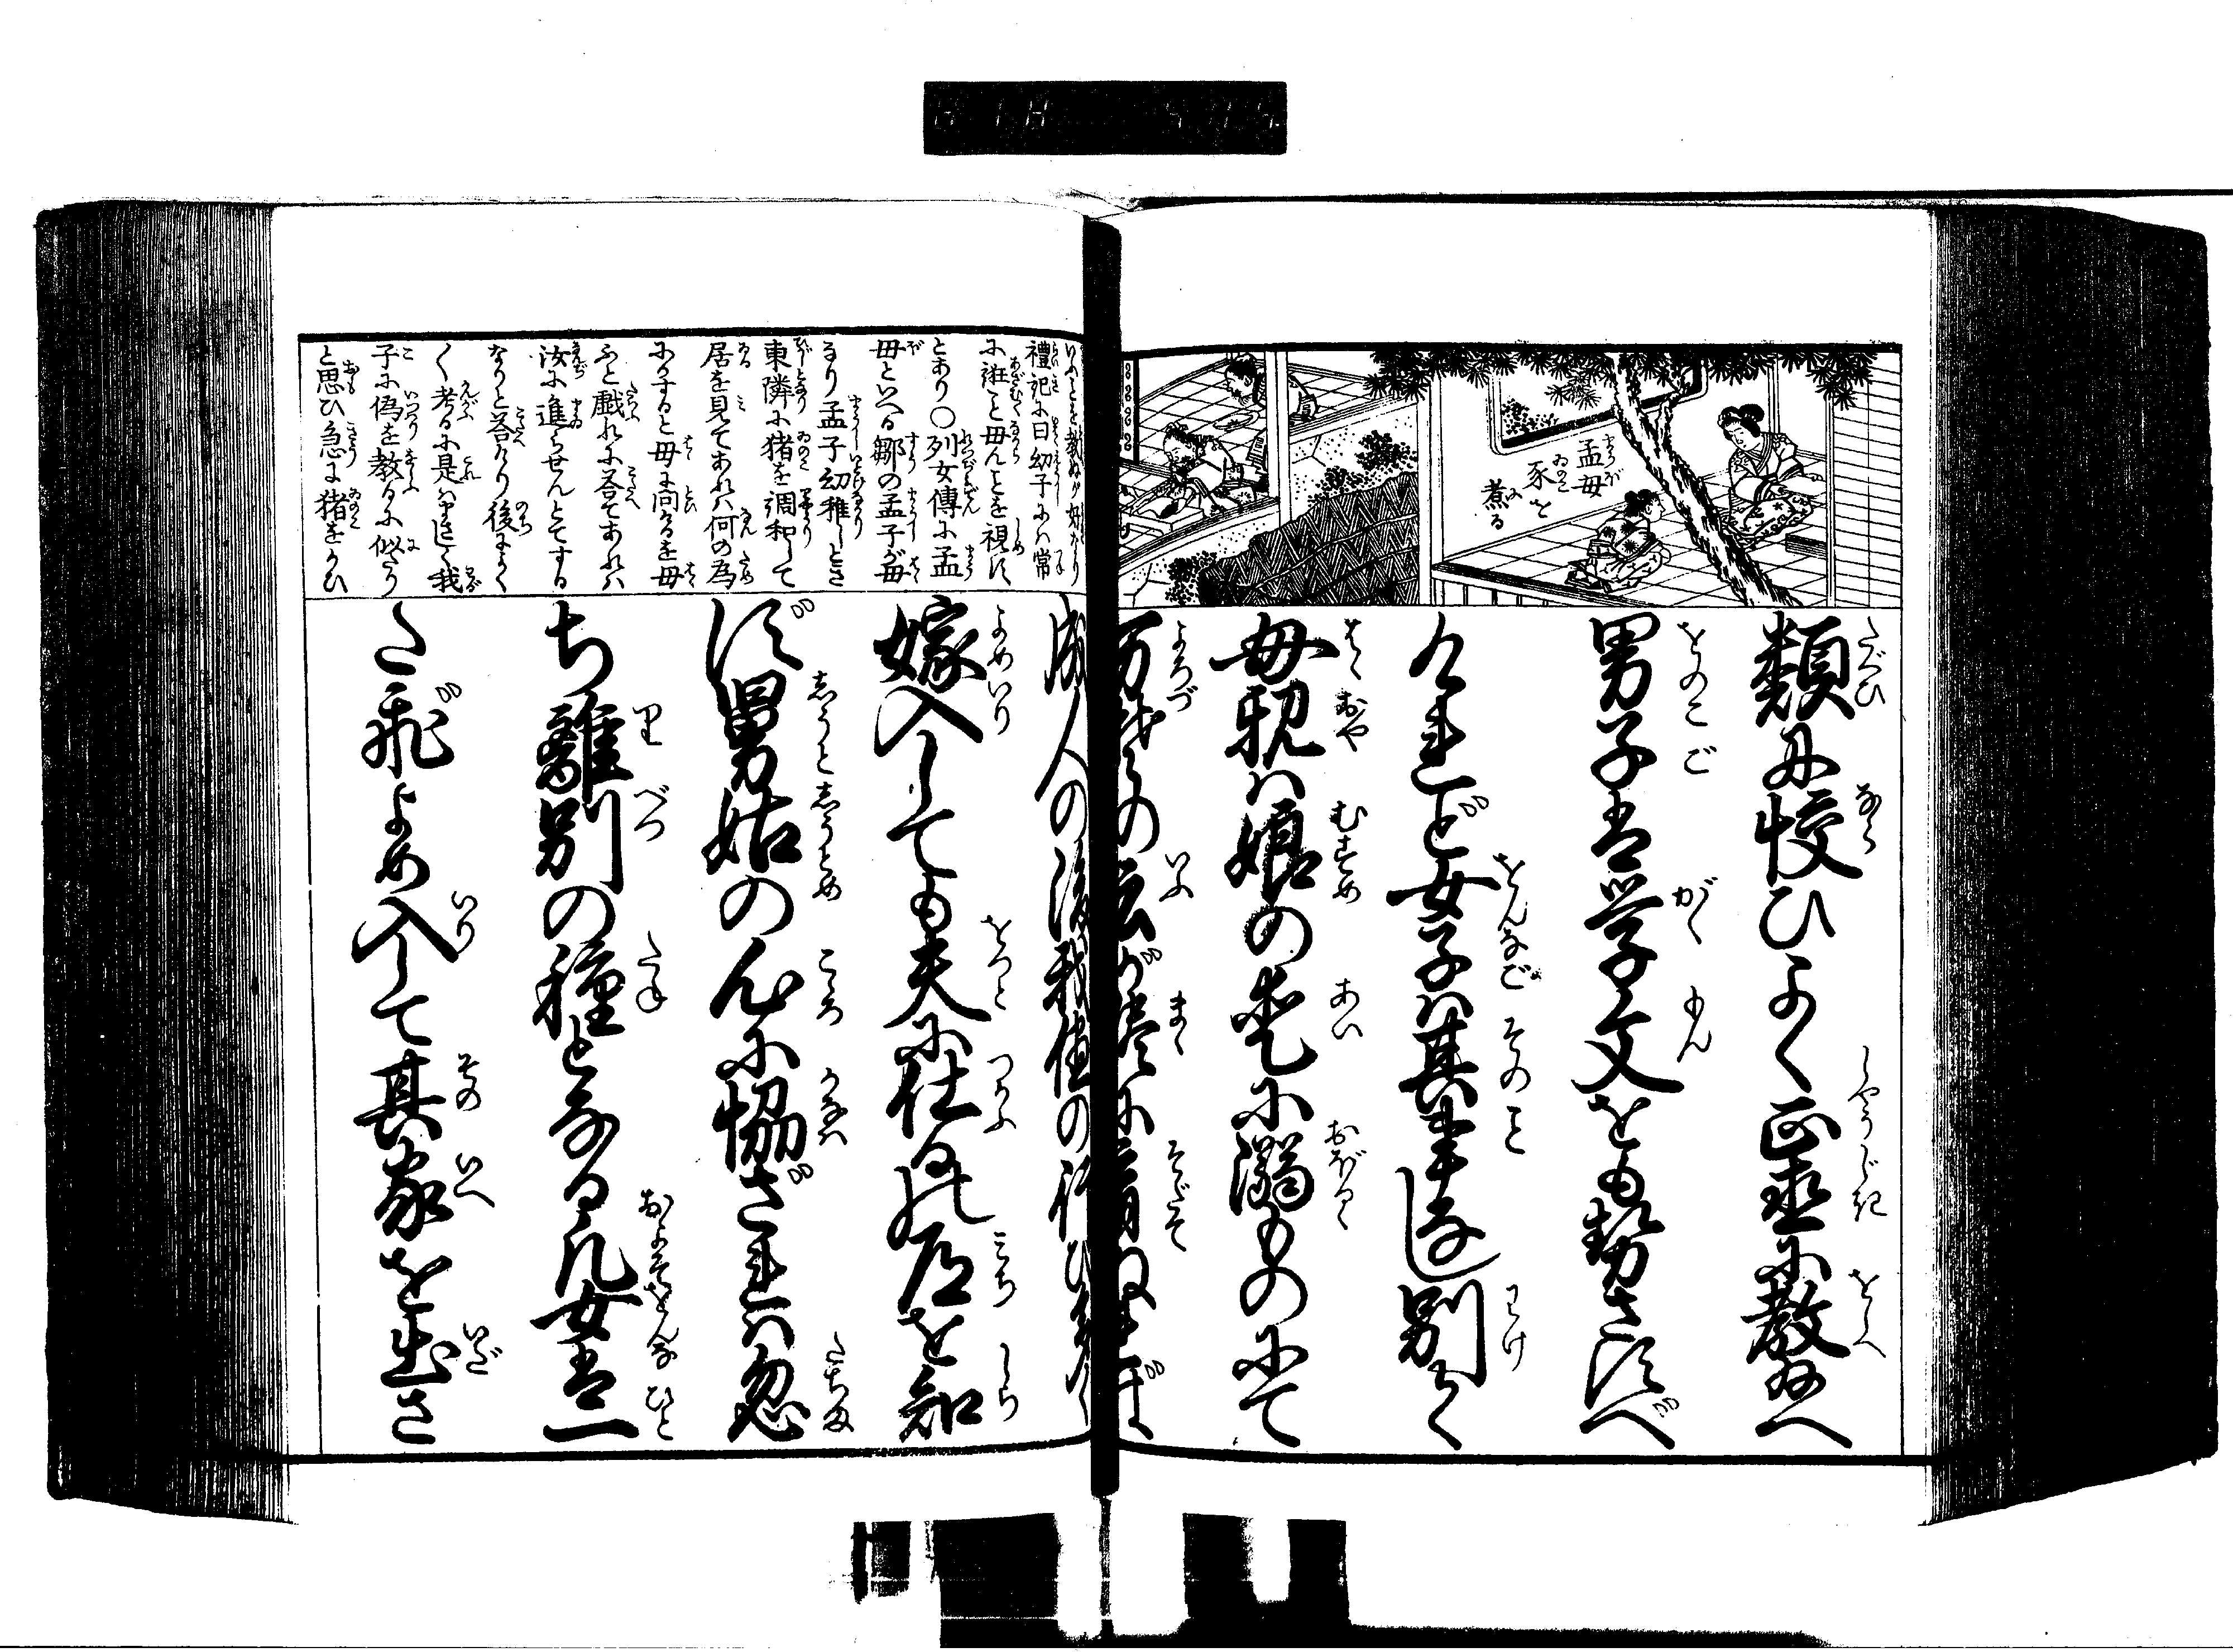 孟母
豕を
煮る
類に恔ひよく正直に教給へ
男子は学文をも勢さすべ
けれど女子は其事迄別てく
母親は娘の愛に溺ものにて
万我等の云が儘に育ぬれば
成人の後我儘の行ひ多く
嫁入しても夫に仕る道を知
ず舅姑の心に協ざれは忽
ち離別の種となる凡女は一
たびよめ入して其家を出さ
禮記に曰幼子にハ常
に誑こと毋んとを視めす
とあり〇列女傳に孟
母といへる鄒の孟子が母
なり孟子幼稚しとき
東隣に猪を調和して
居を見てあれハ何の為
にするすると母に問るを母
ふと戯れに答てあれハ
汝に進らせんとてする
なりと答けり後によく
く考るに是ハまさしく我
子に偽を教るに似たり
と思ひ急に猪をかひ